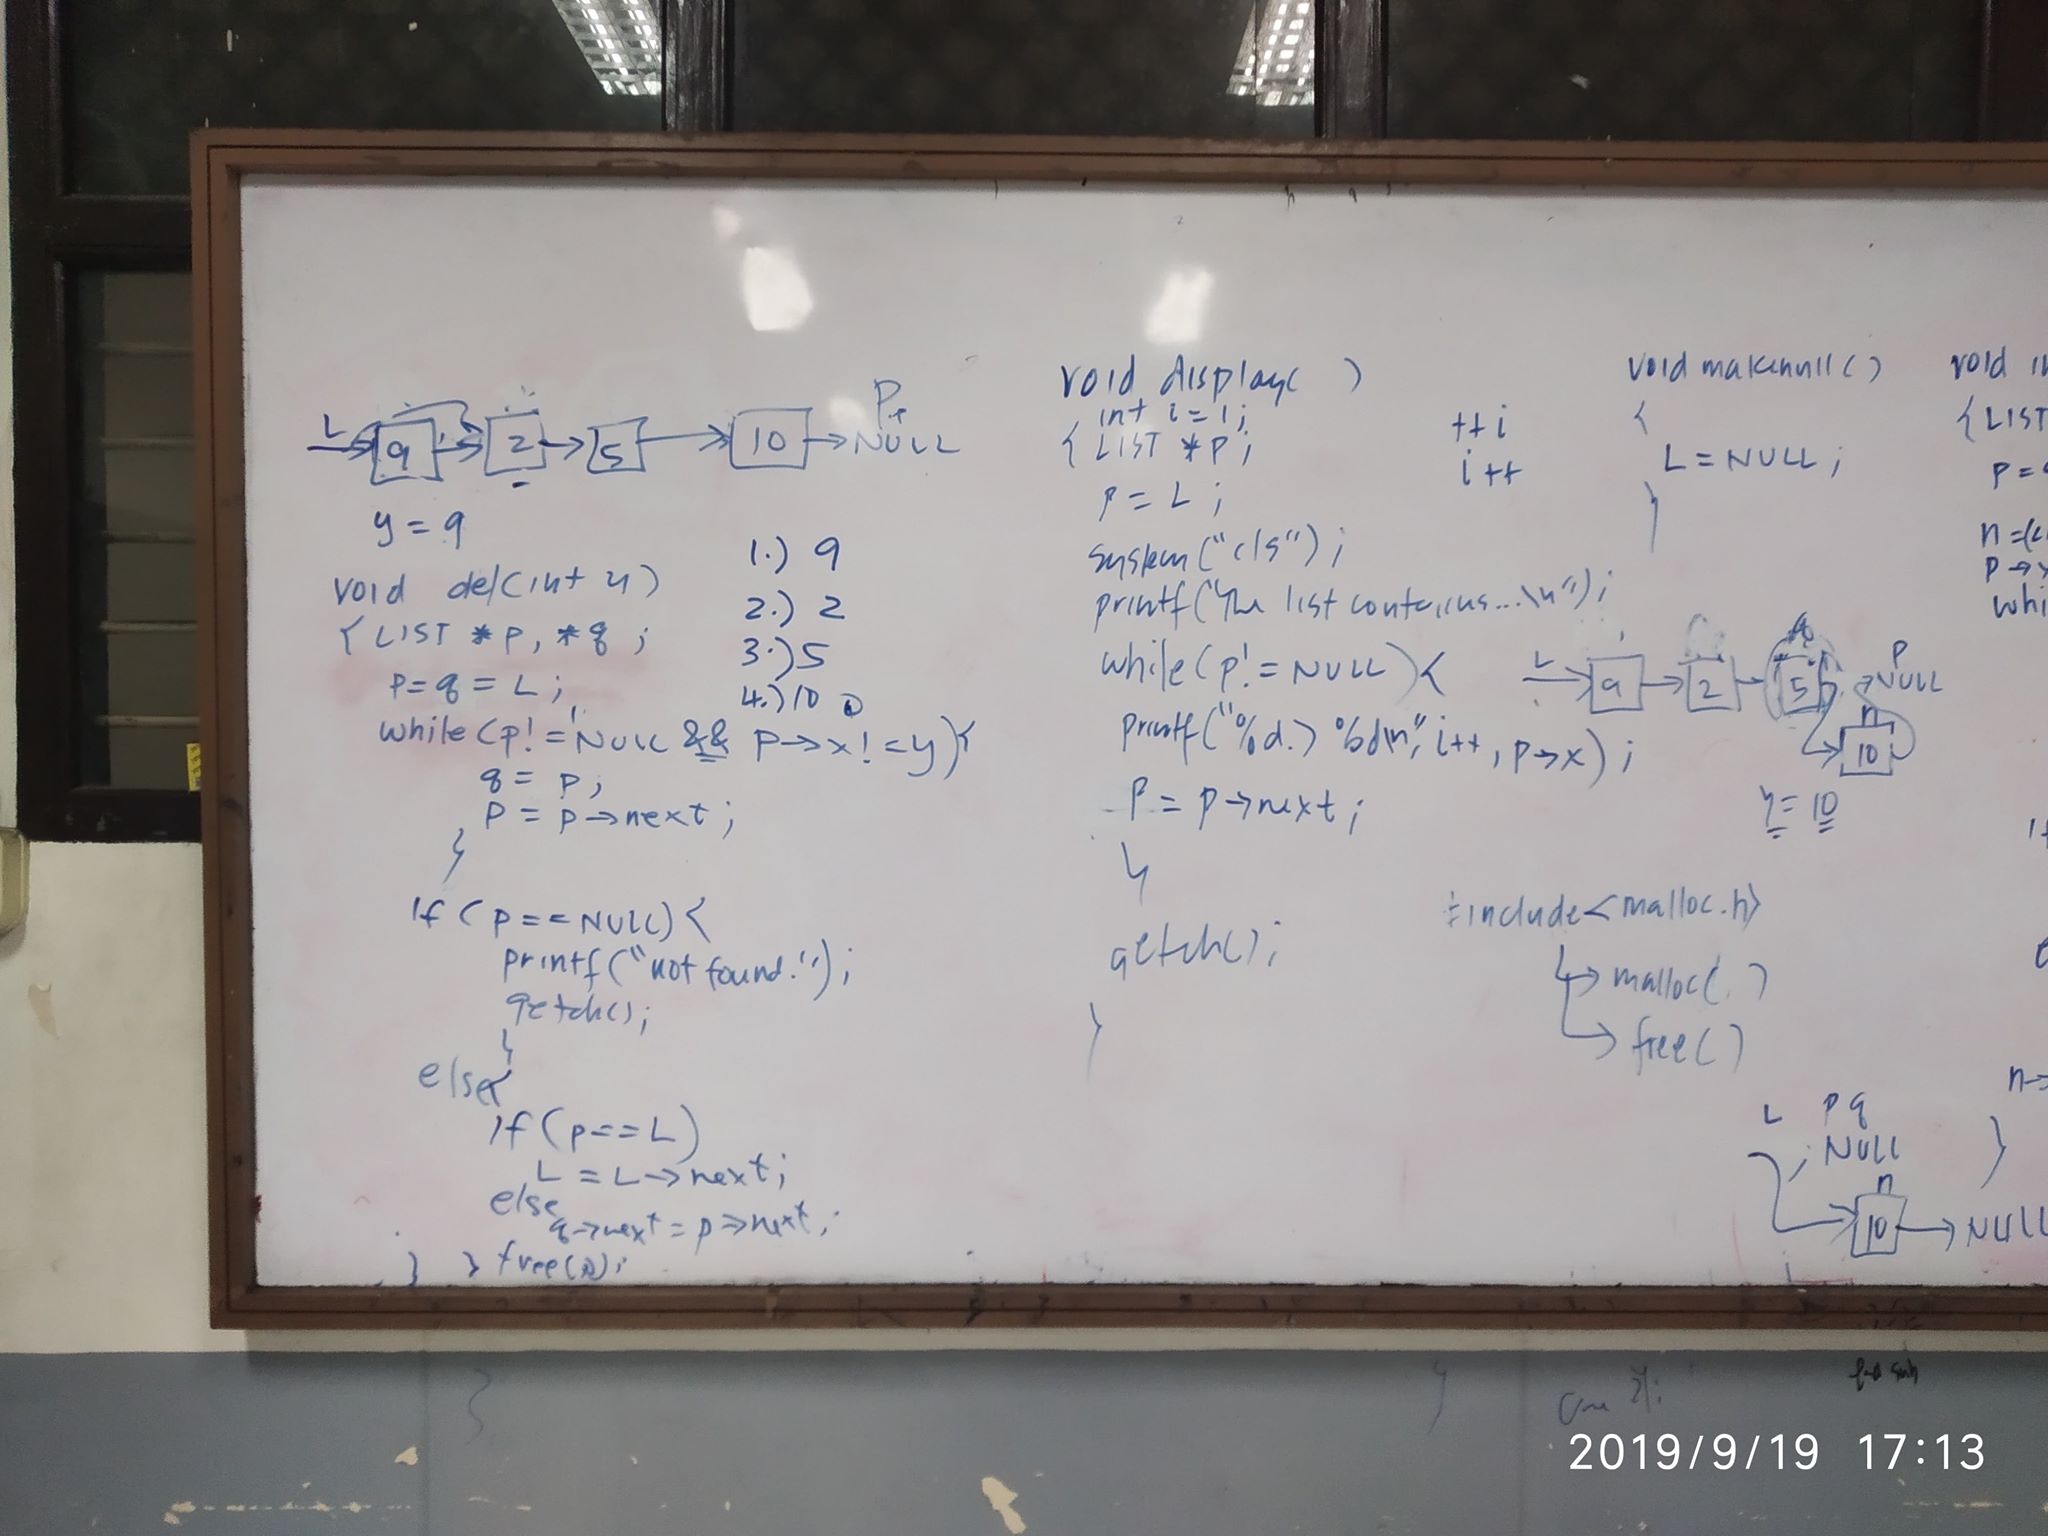 L 9 2 5 10 NULL
P
y = 9
1.) 9
2.) 2
3.) 5
4.) 10
void del(int y)
{ LIST *p, *q ;
p = q = L ;
while (p! = NULL && p→x! = y){
q = p ;
p = p→next ;
}
if ( p == NULL) {
printf("not found.");
getch();
}
else{
if (p==L)
L = L→next;
else
q→next = p→next;
} } free(p);
void display( )
int i = 1;
{ LIST *p ;
p = L ;
system("cls") ;
printf("The list contains...\n") ;
while (p! = NULL) {
printf("%d.) %d\n", i++, p→x) ;
p = p→next ;
}
getch();
}
++i
i++
void makenull()
{
L = NULL ;
}
L 9 2 5 NULL
P
n
10
y = 10
#include<malloc.h>
malloc( )
free( )
L p q
NULL
n
10 NULL
void in
{ LIST
p =
n =
p→x
whi
n→
}
2019/9/19 17:13